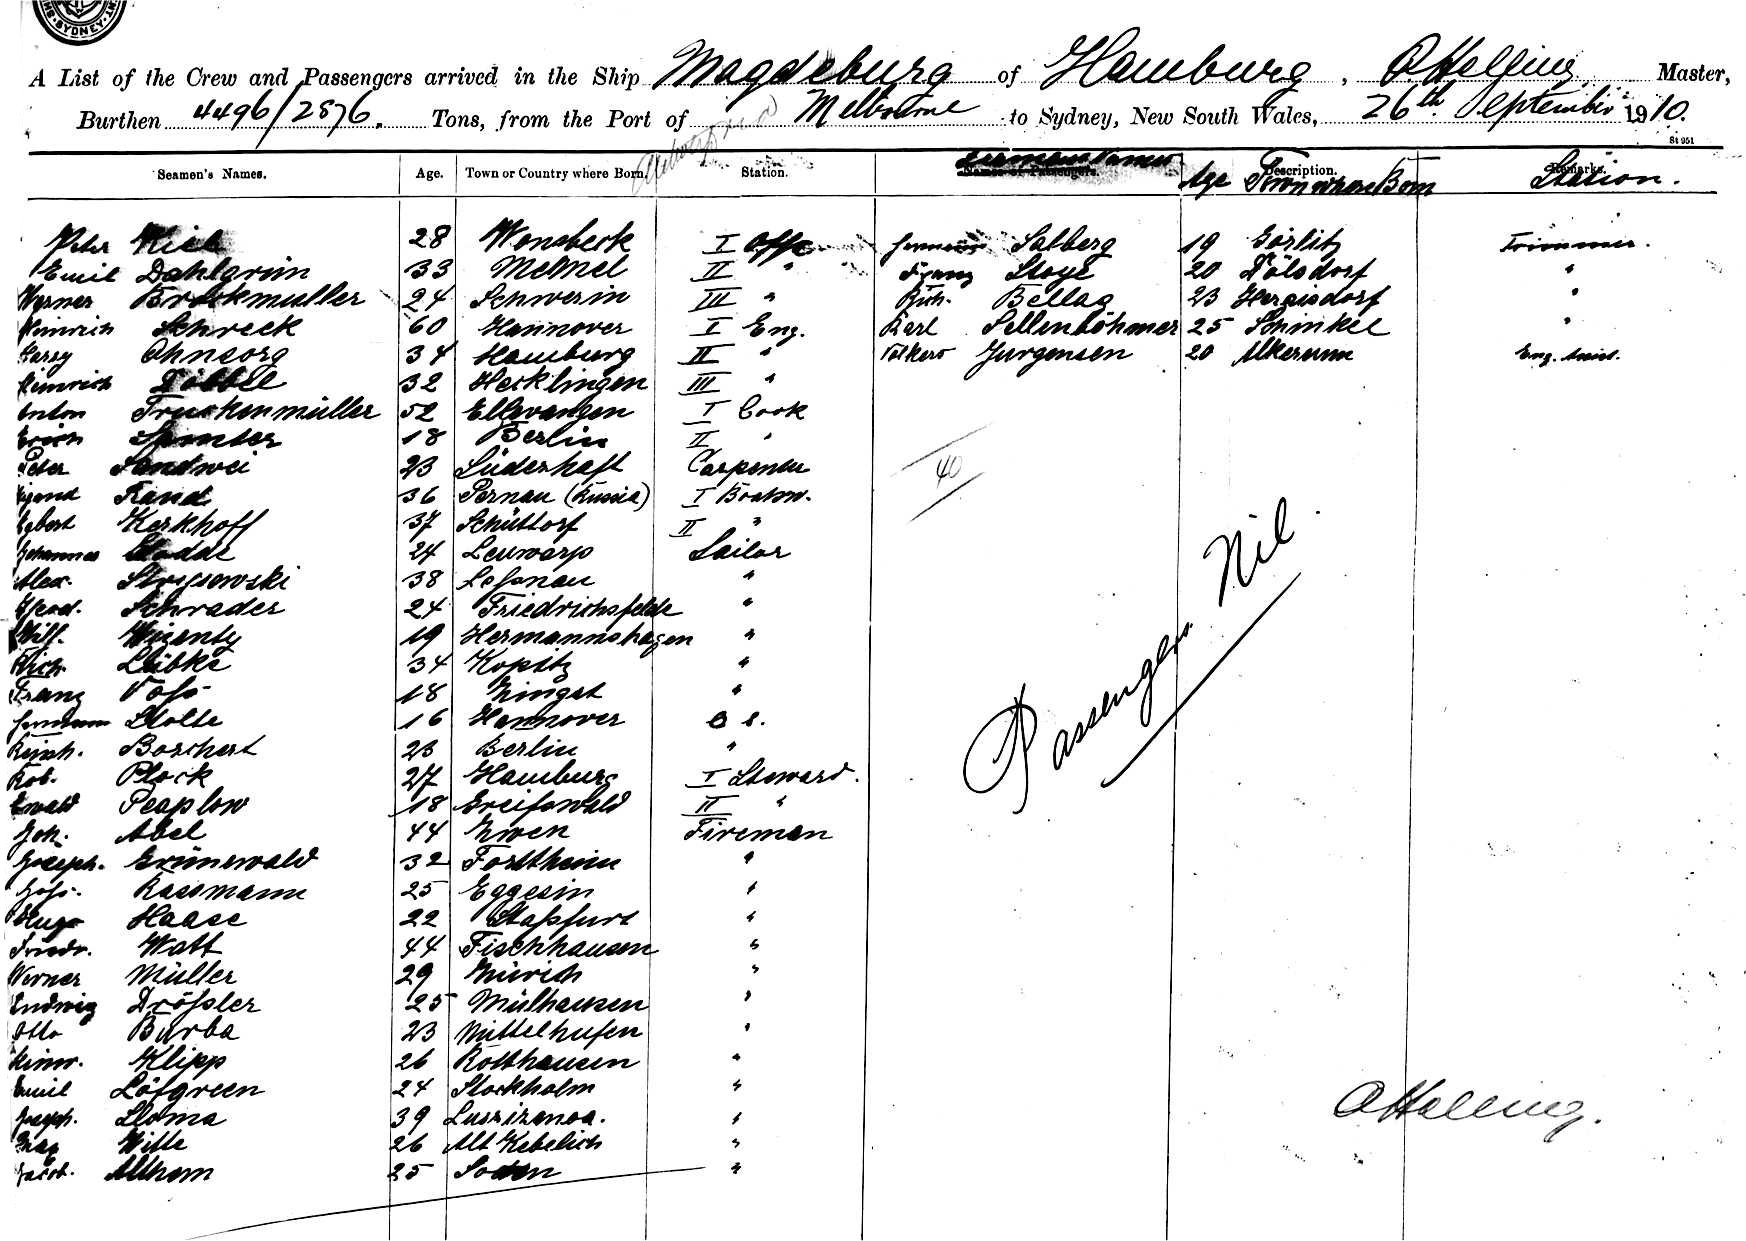 SYDNEY
A List of the Crew and Passengers arrived in the Ship Magdeburg of Hamburg, Master,
Burthen 4496/2876. Tons, from the Port of Melbourne to Sydney, New South Wales, 26th September 1910.
St 951
Seamen's Names. Age. Town or Country where Born. Station. Names of Passengers. Age Description. Town where Born Remarks. Station.
Peter 28 Wansbeck I Offc Hermann Salberg 19 Görlitz Trimmer.
Emil Dahlgrün 33 Memel II " Franz Stoye 20 Dölsdorf "
Werner Brockmuller 24 Schwerin III " Rich. Bellag 23 Hergisdorf "
Heinrich Schreck 60 Hannover I Eng. Karl Sellenböhmer 25 Schinkel "
Harry Ohnsorg 34 Hamburg II " Volkers Jurgensen 20 Eng. Assist.
Heinrich Döbble 32 Hecklingen III "
Anton Truckenmüller 52 Ellwangen I Cook
Erich 18 Berlin II "
Peter Sandwei 23 Süderhaft Carpenter
Rand 36 Pernau (Russia) I Boatsw.
Egbert Kerkhoff 37 Schüttorf II "
Johannes 24 Leuwarp Sailor
Alex. 38 "
Schrader 24 Friedrichsfelde "
Wilh. Wisenty 19 Hermannshagen "
Rich. Lübke 34 Kopitz "
Franz Voss 18 Zingst "
Hermann Stolte 16 Hannover O S.
Reinh. Borchert 23 Berlin "
Rob. Plock 27 Hamburg I Steward.
Ewald Peaplow 18 Greifswald II "
Joh. Abel 44 Ewen Fireman
Joseph. Grünewald 32 Forstheim "
Rassmann 25 Eggesin "
Hugo Haase 22 Staßfurt "
Friedr. Watt 44 Fischhausen "
Werner Müller 29 Zürich "
Ludwig Drößler 25 Mülhausen "
Otto Burba 23 Mittelhufen "
Heinr. Klipp 26 Rotthausen "
Emil Löfgreen 24 Stockholm "
Joseph. Sloma 39 "
Max Witte 26 Alt Kebelich "
Jacob. Altham 25 Soden "
40
Passengers Nil